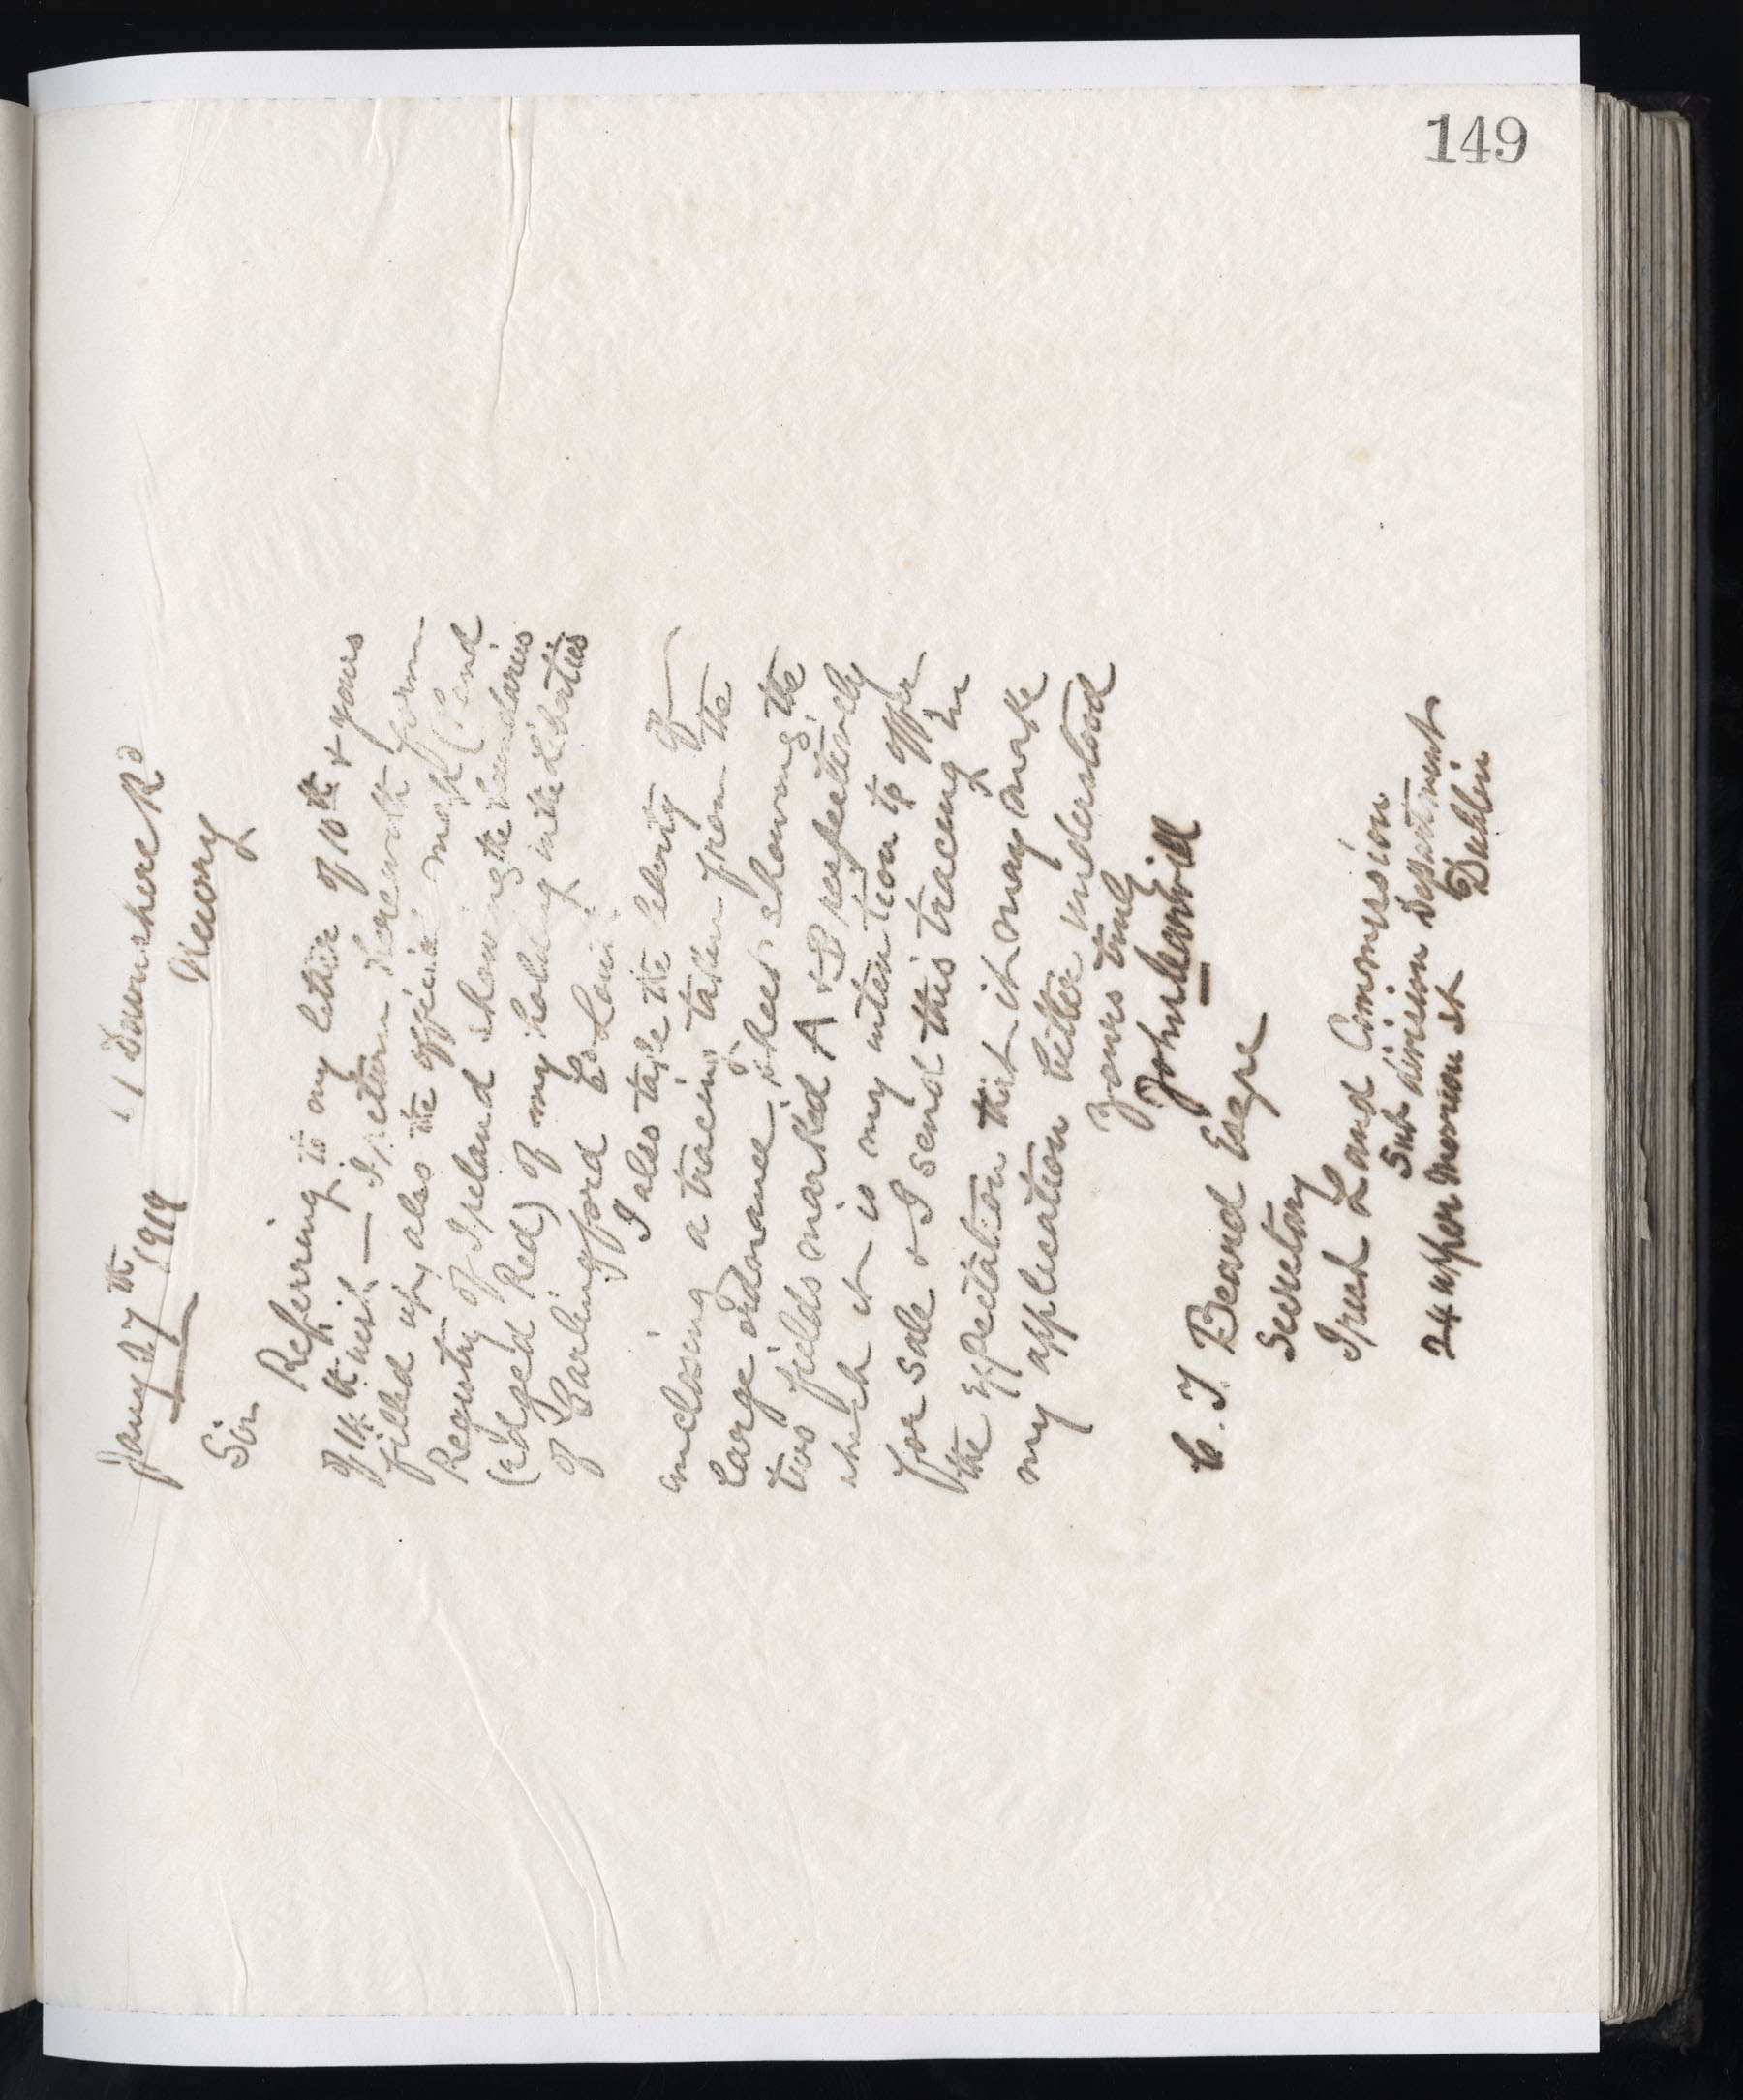 149
1 Downshere Rd
Jany 27th 1919 Newry
Sir
Referring to my letter of 10th & yours
of 16th inst — I return herewith form
filled up, also the official map (Land
Registry of Ireland showing the boundaries
(edged Red) of my holding in the Liberties
of Carlingford Co Louth
I also take the liberty of
enclosing a tracing taken from the
large ordnance sheet showing the
two fields marked A & B respectively
which it is my intention to offer
for sale & I send this tracing in
the expectation that it may make
my application better understood
Yours truly
John
C. T Beard Esqre
Secretary
Irish Land Commission
Sub division Department
24 upper Merrion St Dublin